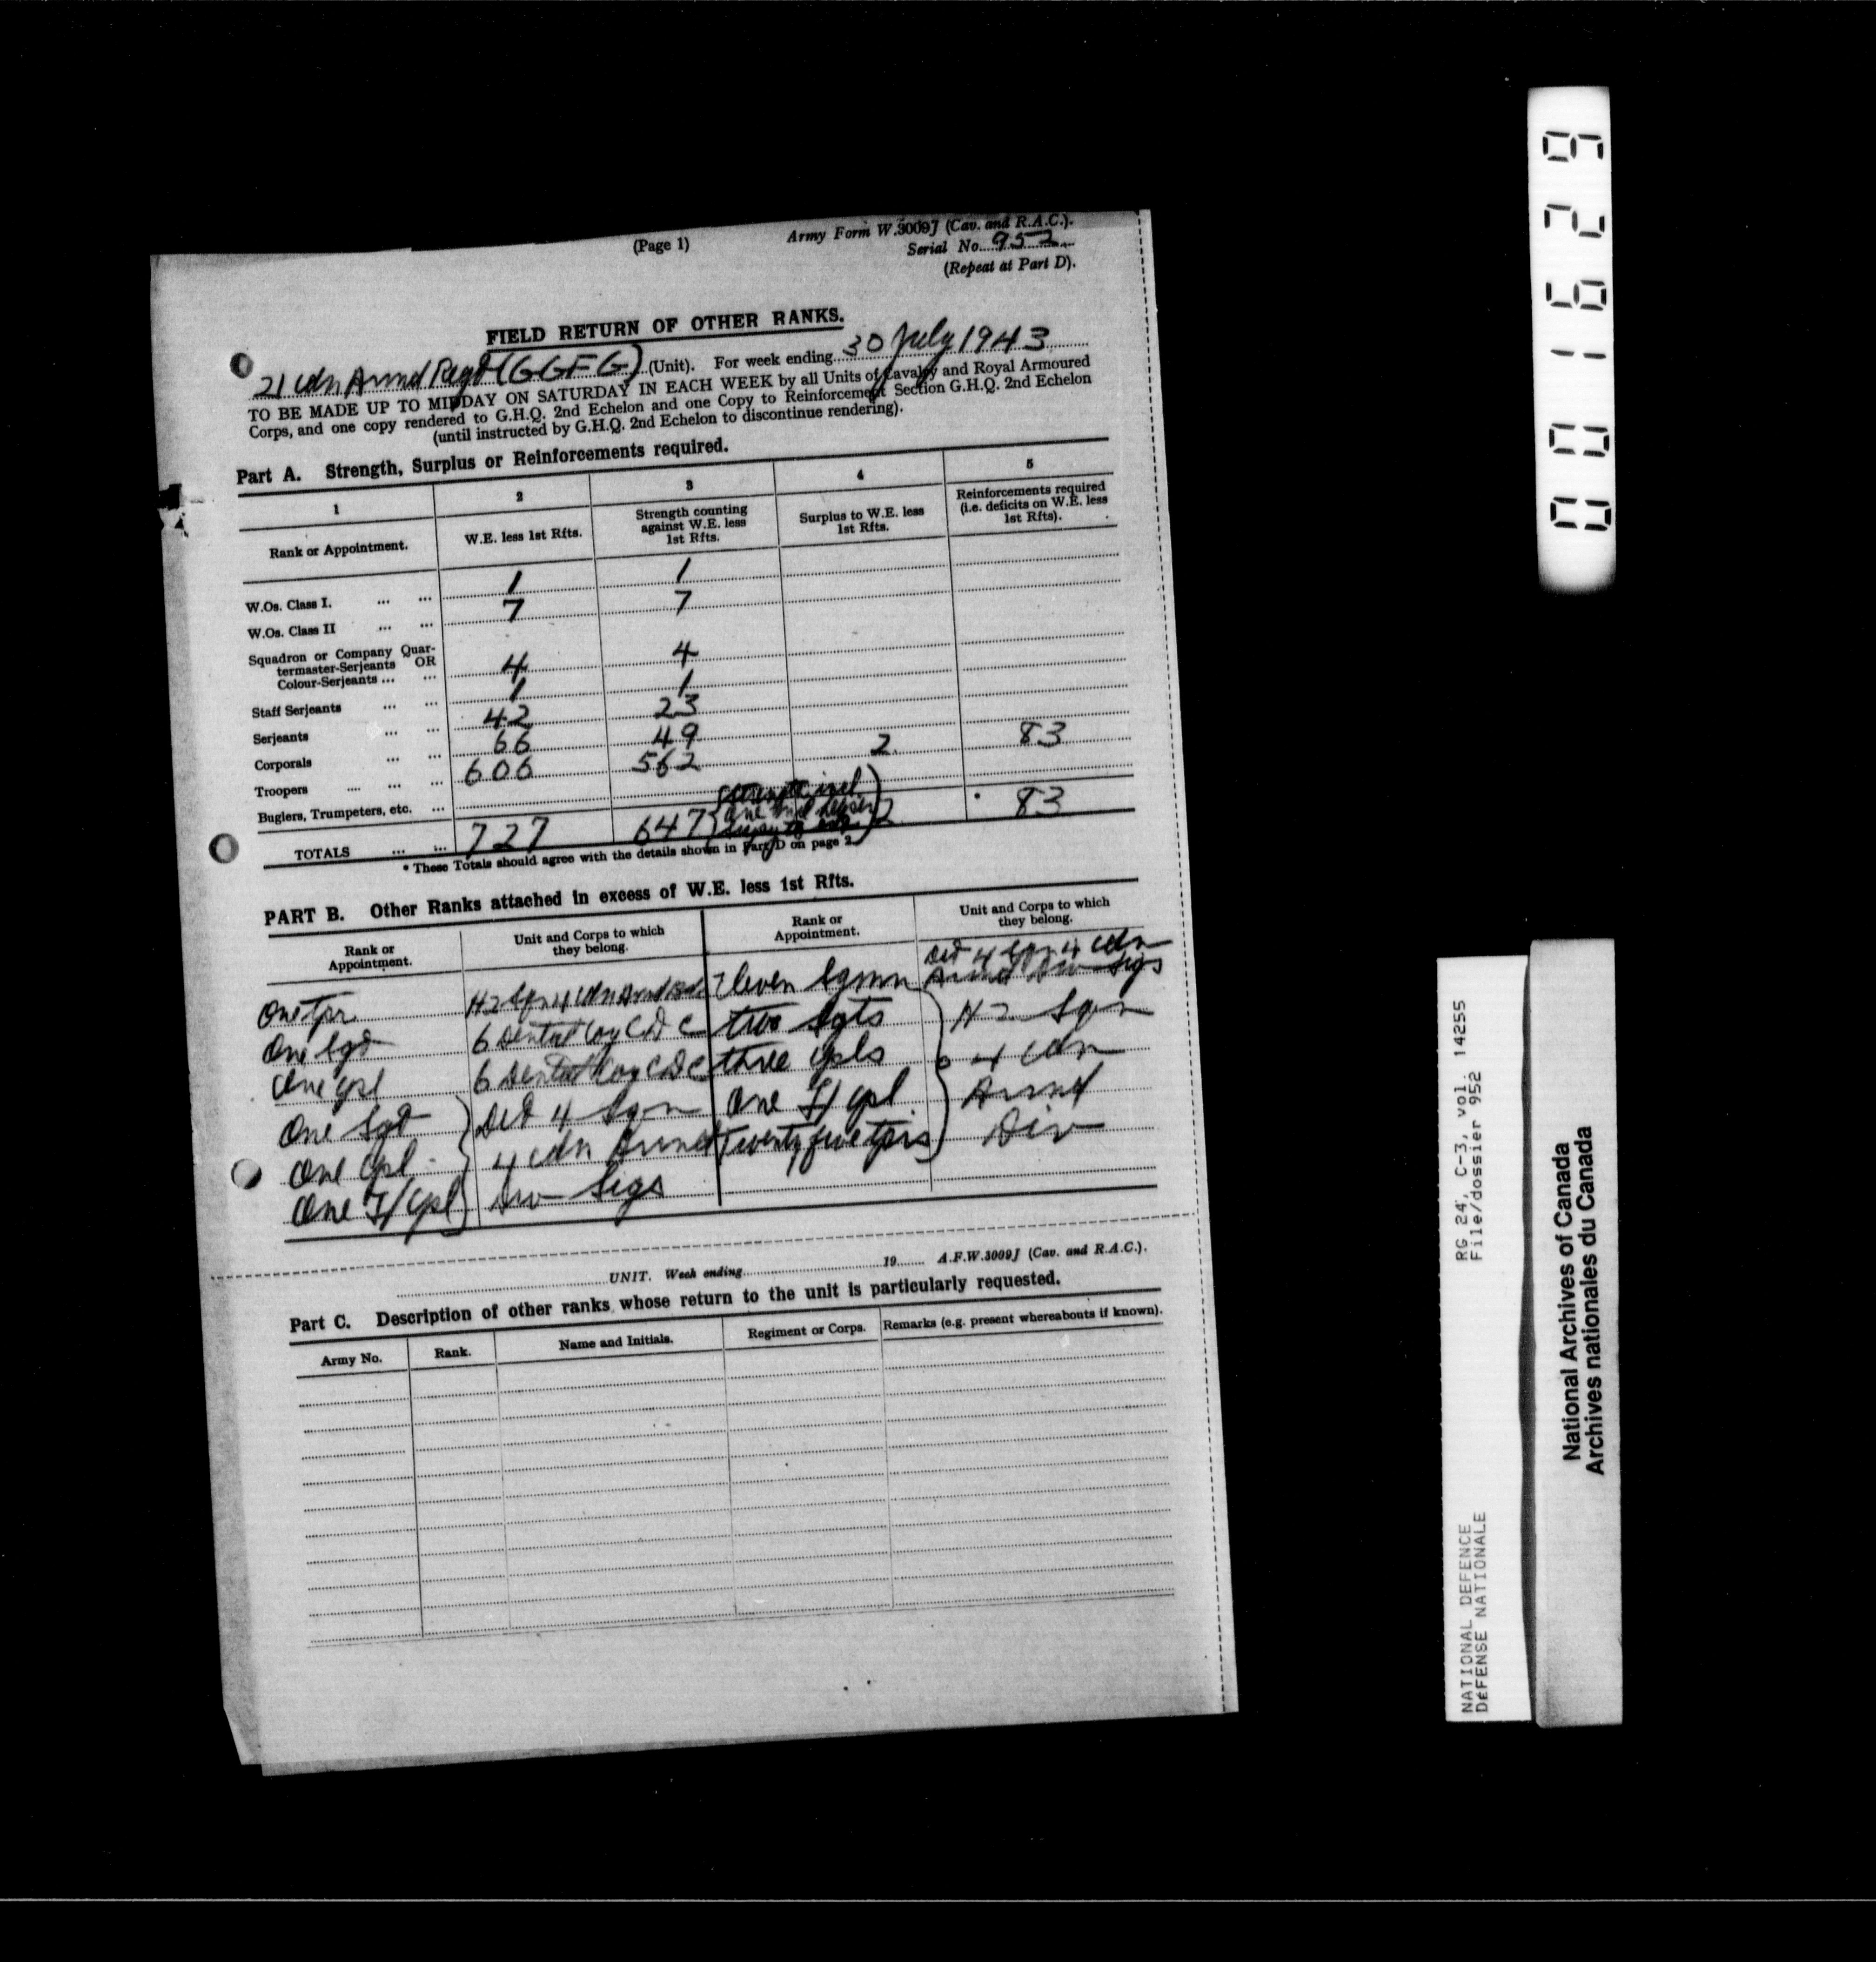 (Page 1)
Army Form W.3009J (Cav. and R.A.C.).
Serial No. 952
(Repeat at Part D).
FIELD RETURN OF OTHER RANKS.
21 Cdn Armd Regt (GGFG) (Unit). For week ending 30 July 1943
TO BE MADE UP TO MIDDAY ON SATURDAY IN EACH WEEK by all Units of Cavalry and Royal Armoured
Corps, and one copy rendered to G.H.Q. 2nd Echelon and one Copy to Reinforcement Section G.H.Q. 2nd Echelon
(until instructed by G.H.Q. 2nd Echelon to discontinue rendering).
Part A. Strength, Surplus or Reinforcements required.
1 2 3 4 5
Rank or Appointment. W.E. less 1st Rfts. Strength counting against W.E. less 1st Rfts. Surplus to W.E. less 1st Rfts. Reinforcements required (i.e. deficits on W.E. less 1st Rfts).
W.Os. Class I. ... ... 1 1
W.Os. Class II ... ... 7 7
Squadron or Company Quar-
termaster-Serjeants OR
Colour-Serjeants ... ... 4 4
Staff Serjeants ... ... 1 1
Serjeants ... ... 42 23
Corporals ... ... 66 49
Troopers ... ... ... 606 562 2 83
Buglers, Trumpeters, etc. ...
TOTALS ... ... 727 647 (Strength incl one 2 83
* These Totals should agree with the details shown in Part D on page 2
PART B. Other Ranks attached in excess of W.E. less 1st Rfts.
Rank or Appointment. Unit and Corps to which they belong. Rank or Appointment. Unit and Corps to which they belong.
One tpr HQ Sqn 4 Cdn Armd Bde Eleven Sgmn Det 4 Sqn 4 Cdn Armd Div Sigs
One Sgt 6 Dental Coy CDC two Sgts HQ Sqn
One Cpl 6 Dental Coy CDC three Cpls 4 Cdn
One Sgt Det 4 Sqn One L/Cpl Armd
One Cpl 4 Cdn Armd Twenty five tprs Div
One L/Cpl Div Sigs
UNIT. Week ending 19 A.F.W.3009J (Cav. and R.A.C.).
Part C. Description of other ranks whose return to the unit is particularly requested.
Army No. Rank. Name and Initials. Regiment or Corps. Remarks (e.g. present whereabouts if known).
001629
RG 24, C-3, vol. 14255
File/dossier 952
NATIONAL DEFENCE
DÉFENSE NATIONALE
National Archives of Canada
Archives nationales du Canada